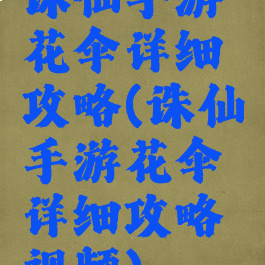 诛仙手游
花伞详细
攻略(诛仙
手游花伞
详细攻略
视频)